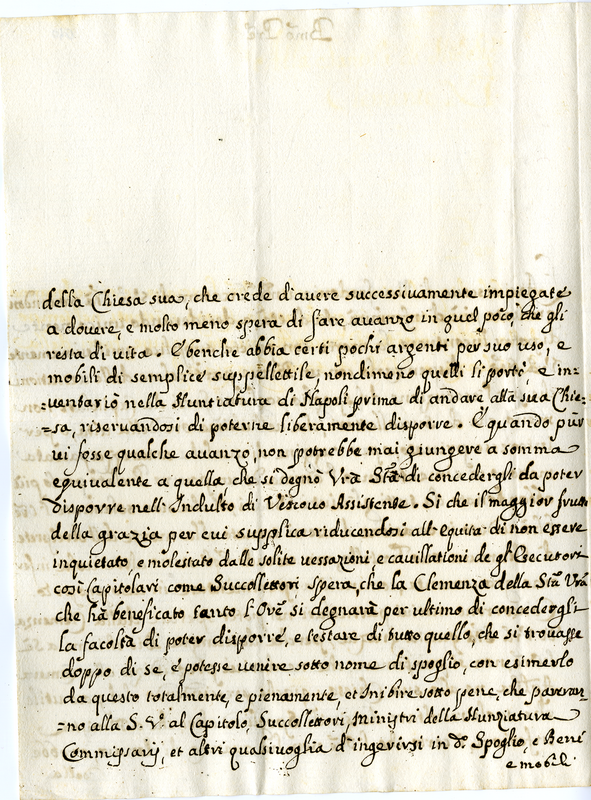 della Chiesa sua, che crede d'avere successivamente impiegate
a dovere, e molto meno spera di fare avanzo in quel poco, che gli
resta di vita. E benche abbia certi pochi argenti per suo uso, e
mobili di semplice suppellettile, nondimeno quelli li portò, e in-
-ventariò nella Nuntiatura di Napoli prima di andare alla sua Chie-
-sa, riservandosi di poterne liberamente disporre. E quando pur
vi fosse qualche avanzo, non potrebbe mai giungere a somma
equivalente a quella, che si degnò Vrã Stã di concedergli da poter
disporre nell'Indulto di Vescovo Assistente. Si che il maggior frutto
della grazia per cui supplica riducendosi all'equità di non essere
inquietato, e molestato dalle solite vessazioni, e cavillationi de gl'Esecutori
così Capitolari come Succollettori spera, che la Clemenza della Stã Vrã
che hà beneficato tanto l'Orẽ si degnarà per ultimo di concedergli
la facoltà di poter disporre, e testare di tutto quello, che si trovasse
doppo di se, e potesse venire sotto nome di spoglio, con esimerlo
da questo totalmente, e pienamente, et inibire sotto pene, che pareran-
-no alla S. V.ª al Capitolo, Succollettori, Ministri della Nunziatura
Commissarij, et altri qualsivoglia d'ingerirsi in d.º Spoglio, e Beni
e mobili